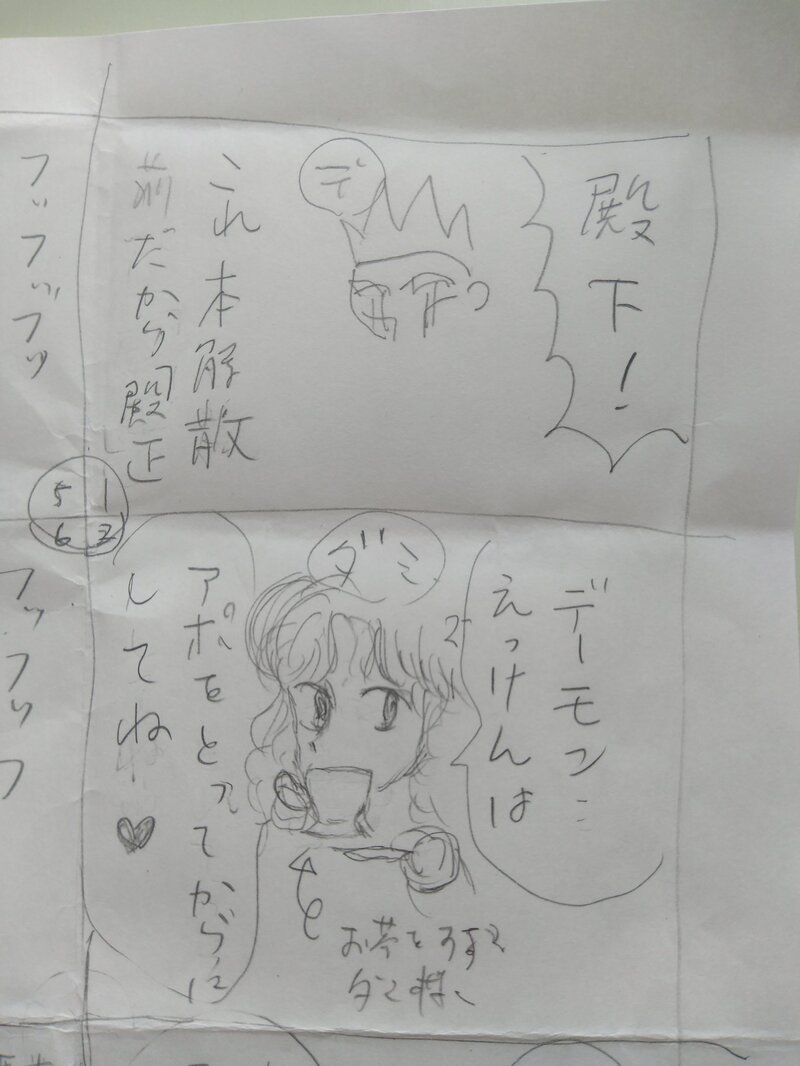 殿下！
デ
これ本解散
前だから殿正
デーモン…
えっけんは
ダミ
アポをとってからに
してね♥
お茶をすする
ダミ様
フッフッフッ
5 1
6 2
フッフッフ